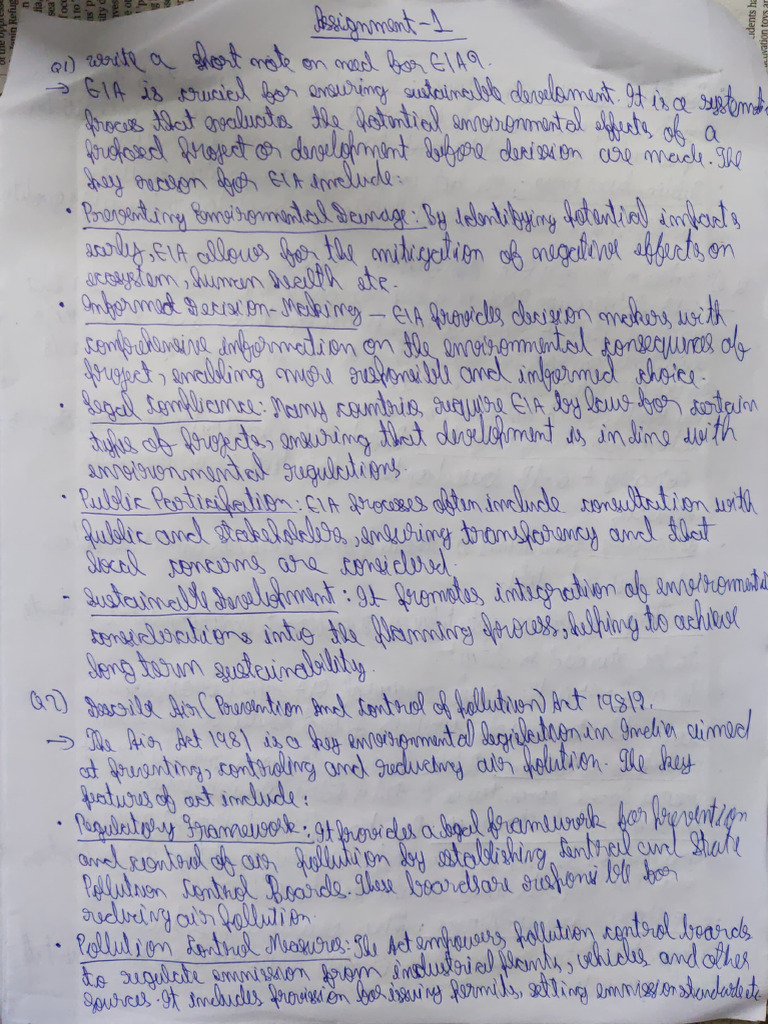 Assignment-1
Q1) Write a short note on need for EIA?
→ EIA is crucial for ensuring sustainable develoment. It is a systemat
proces that evaluates the potential environmental effects of a
proposed project or development before decission are made. The
key reason for EIA include:
• Preventing Environmental Damage: By identifying potential impacts
early, EIA allows for the mitigation of negative effects on
ecosystem, human health etc.
• Informed Decision-Making – EIA provides decision makers with
comprehensive information on the environmental consequences of
project, enabling more responsible and informed choice.
• Legal Compliance: Many countries require EIA by law for certain
type of projects, ensuring that development is in line with
environmental regulations.
• Public Participation: EIA processes often include consultation with
public and stakeholders, ensuring transparency and that
local concerns are considered.
• Sustainable Development: It promotes integration of environmenta
considerations into the planning process, helping to achieve
long term sustainability.
Q.2) Describe Air (Prevention And Control of Pollution) Act 1981?
→ The Air Act 1981 is a key environmental legislation in India aimed
at preventing, controling and reducing air polution. The key
features of act include:
• Regulatory Framework: It provides a legal framework for prevention
and control of air pollution by establishing Central and State
Pollution Control Boards. These boards are responsible for
reducing air pollution.
• Pollution Control Measures: The Act empowers pollution control boards
to regulate emmission from industrial plants, vehicles and other
sources. It includes provission for issuing permits, setting emmission standards etc